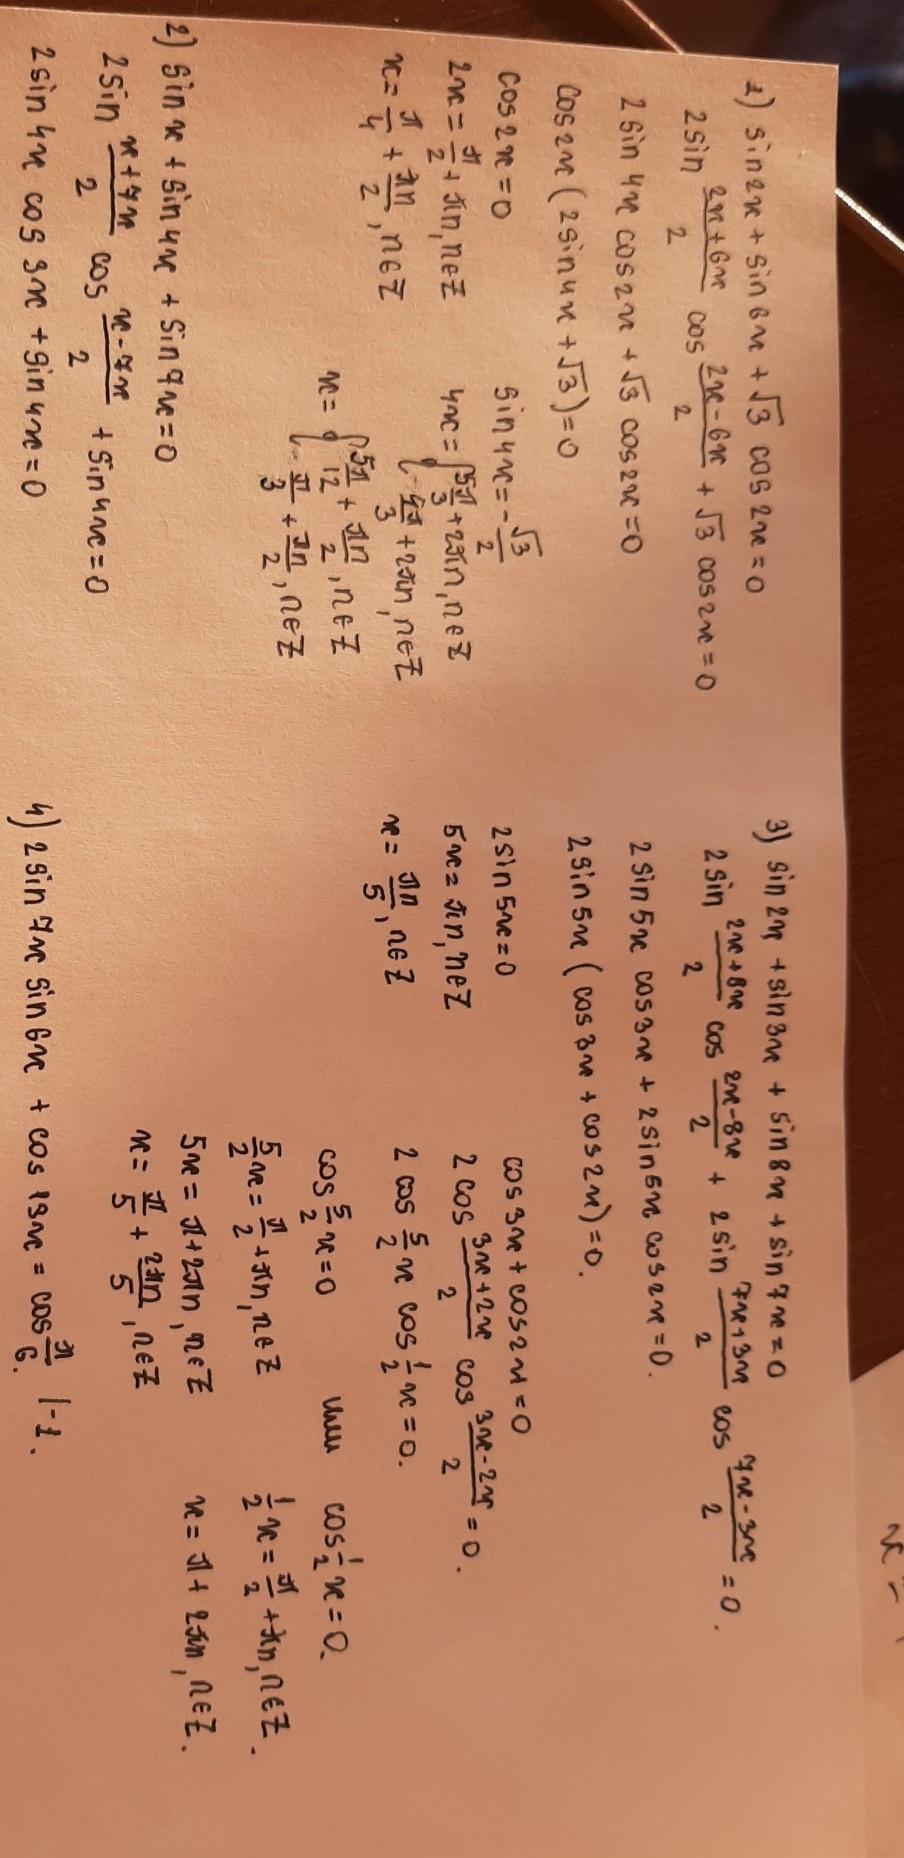 1) sin2x + sin6x + √3 cos2x = 0
2sin (2x+6x)/2 cos (2x-6x)/2 + √3 cos2x = 0
2sin4x cos2x + √3 cos2x = 0
cos2x (2sin4x + √3) = 0
cos2x = 0
2x = π/2 + πn, n∈Z
x = π/4 + πn/2, n∈Z
sin4x = -√3/2
4x = { 5π/3 + 2πn, n∈Z
-4π/3 + 2πn, n∈Z
x = { 5π/12 + πn/2, n∈Z
-π/3 + πn/2, n∈Z
2) sinx + sin4x + sin7x = 0
2sin (x+7x)/2 cos (x-7x)/2 + sin4x = 0
2sin4x cos3x + sin4x = 0
3) sin2x + sin3x + sin8x + sin7x = 0
2sin (2x+8x)/2 cos (2x-8x)/2 + 2sin (7x+3x)/2 cos (7x-3x)/2 = 0.
2sin5x cos3x + 2sin5x cos2x = 0.
2sin5x (cos3x + cos2x) = 0.
2sin5x = 0
5x = πn, n∈Z
x = πn/5, n∈Z
cos3x + cos2x = 0
2cos (3x+2x)/2 cos (3x-2x)/2 = 0.
2cos 5/2 x cos 1/2 x = 0.
cos 5/2 x = 0 или cos 1/2 x = 0.
5/2 x = π/2 + πn, n∈Z
5x = π + 2πn, n∈Z
x = π/5 + 2πn/5, n∈Z
1/2 x = π/2 + πn, n∈Z.
x = π + 2πn, n∈Z.
4) 2sin7x sin6x + cos13x = cos π/6. |-1.